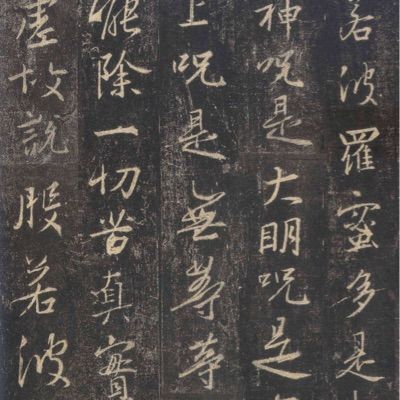 若波羅蜜多是
神呪是大明呪是
上呪是無等等
能除一切苦真實
虛故說般若波